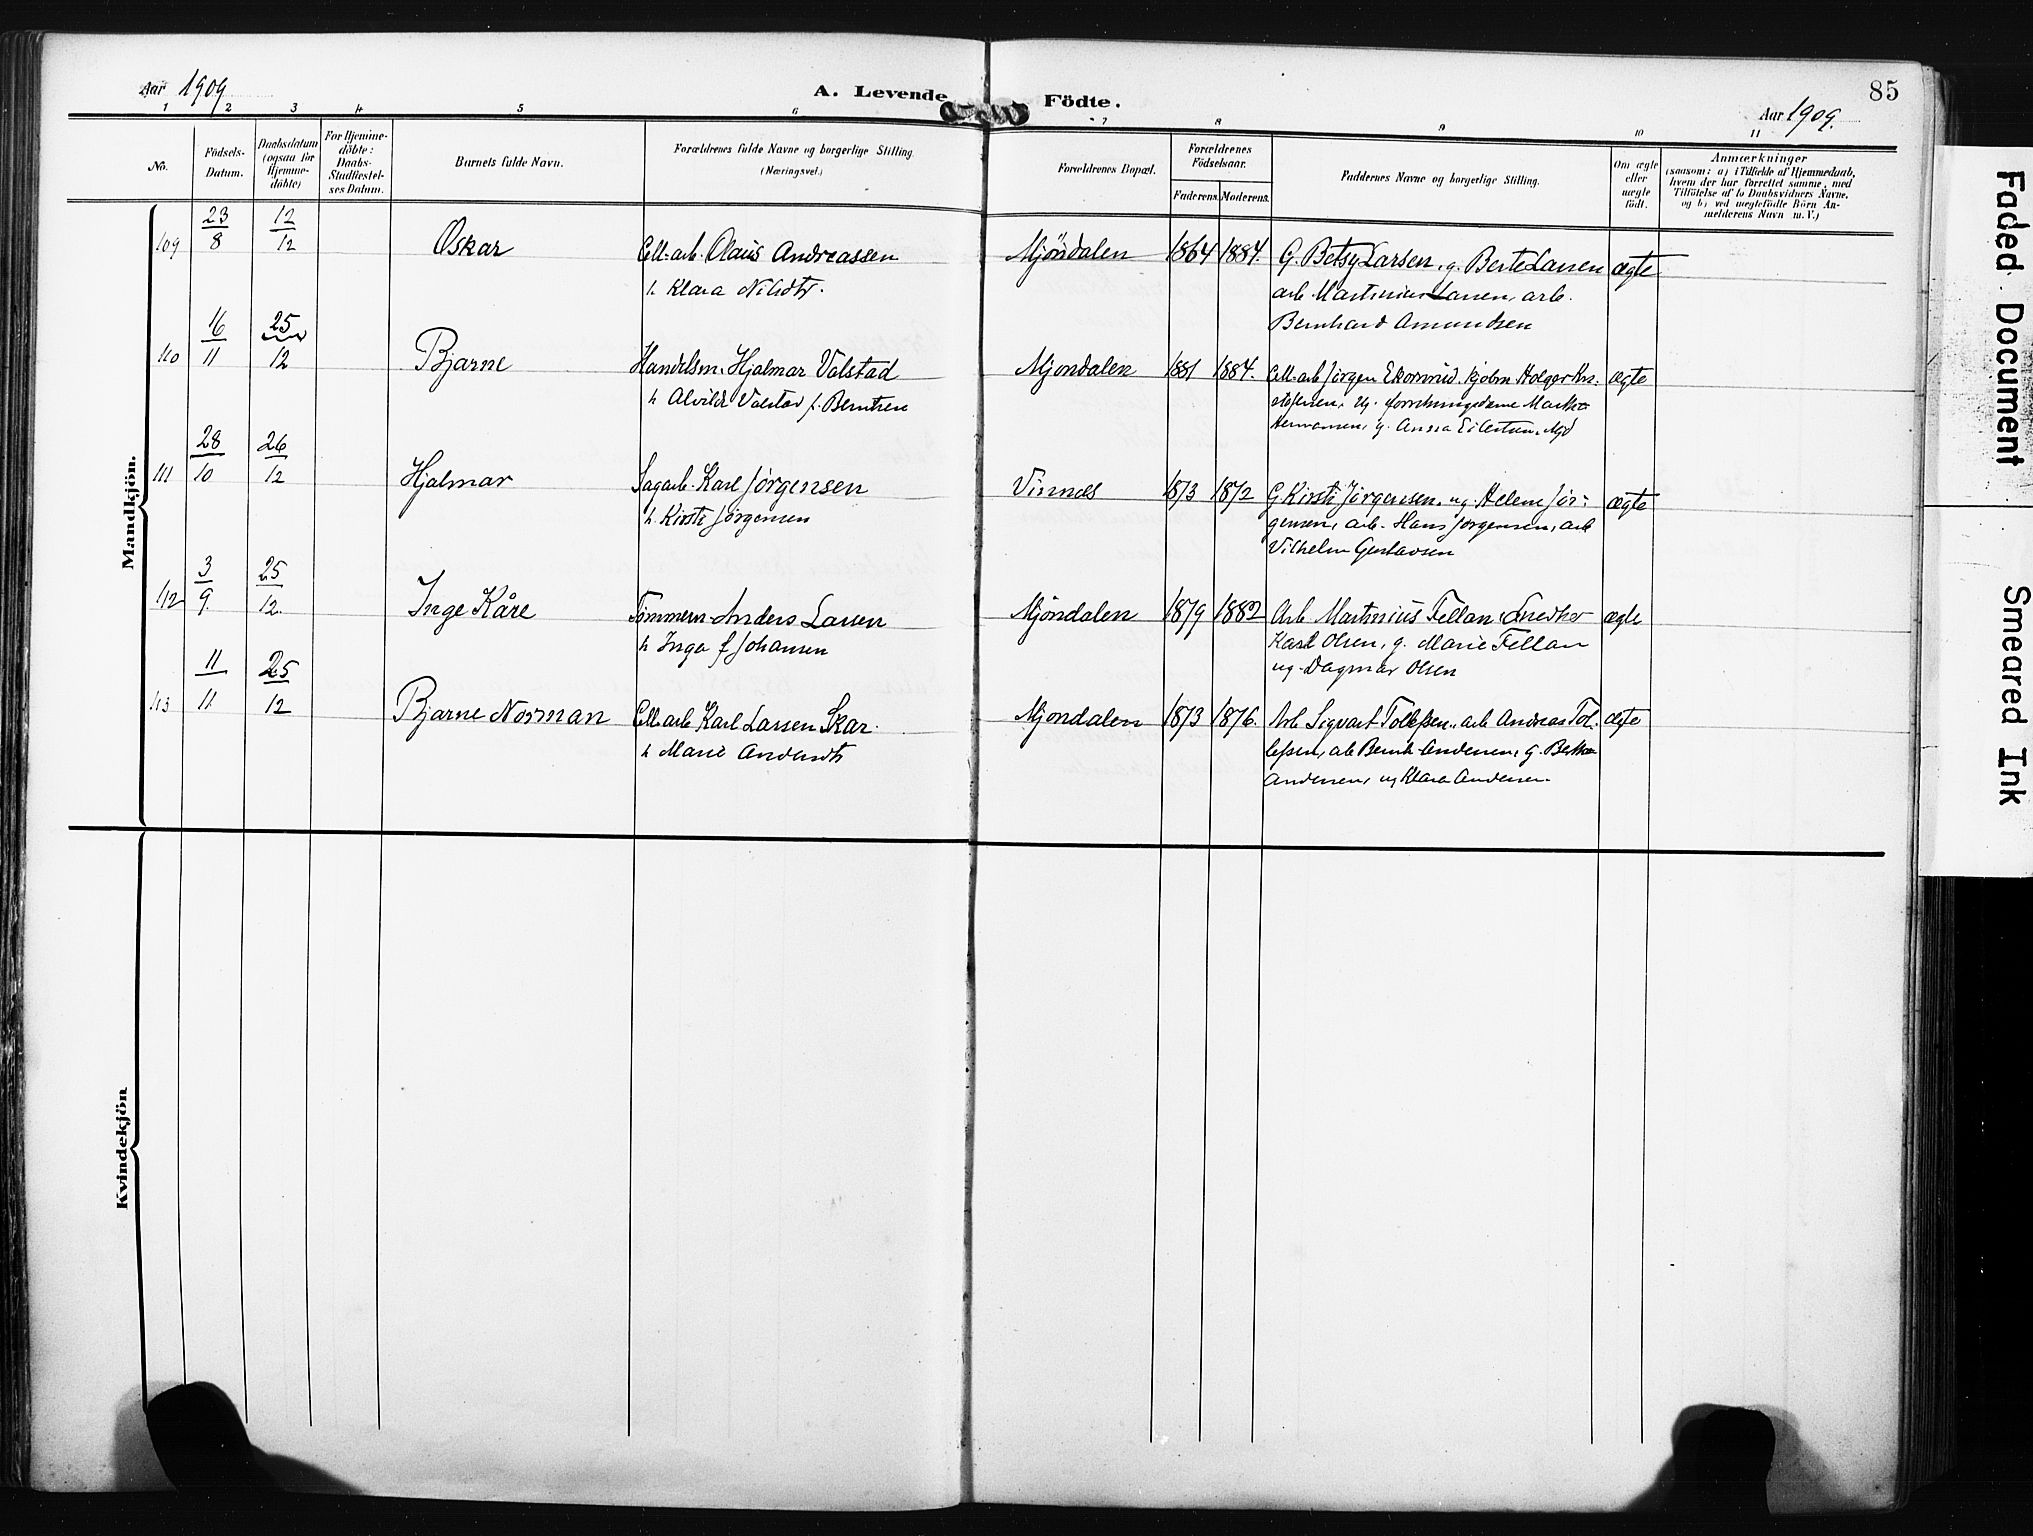 Aar 1909
A. Levende
Födte.
85
Aar 1909.
1 2 3 4 5 6 7 8 9 10 11
No.
Födsels-
Datum.
Daabsdatum
(ogsaa for
Hjemme-
döbte)
For Hjemme-
döbte:
Daabs-
Stadfæstel-
ses Datum.
Barnets fulde Navn.
Forældrenes fulde Navne og borgerlige Stilling
(Næringsvei.)
Forældrenes Bopæl.
Forældrenes
Födselsaar.
Faderens.
Moderens.
Faddernes Navne og borgerlige Stilling.
Om ægte
eller
uægte
födt.
Anmærkninger
(saasom: a) i Tilfælde af Hjemmedaab,
hvem der har forrettet samme, med
Tilföielse af to Daabsvidners Navne.
og b) ved uægtefödte Börn An-
melderens Navn m. V.)
Mandkjön.
109 23/8 12/12 Oskar Cell-arb. Olaus Andreassen Mjöndalen 1864 1884. G. Betsy Larsen, g. Berte Larsen ægte
h. Klara Nilsdtr. arb. Martinius Larsen, arb.
Bernhard Amundsen
110 16/11 25/12 Bjarne Handelsm. Hjalmar Valstad Mjondalen 1881 1884. Cell-arb Jörgen Ekornrud, Holger ægte
h Alvilde Valstad f. Berntsen Ug.
g. Anna
111 28/10 26/12 Hjalmar Sagarb. Karl Jørgensen Vinnes 1873 1872 G Kirsti Jørgensen, ug. Helene Jør- ægte
h. Kirsti Jørgensen gensen, arb. Hans Jørgensen, arb
Vilhelm Gustavsen
112 3/9. 25/12. Inge Kåre Tömmerm Anders Larsen Mjöndalen 1879 1882 Arb Martinius Tellan, Snedker ægte
h Inga f Johansen Karl Olsen, g. Marie Tellan
ug. Dagmar Olsen
113 11/11 25/12 Bjarne Norman Cell arb Karl Larsen Skar. Mjondalen 1873 1876. Arb Sigvart Tollefsen, arb Andreas Tol- ægte
h Marie Andersdtr lefsen, arb Bernh Andersen, g.
Andersen, ug Klara Andersen.
Kvindekjön
Faded Document
Smeared Ink